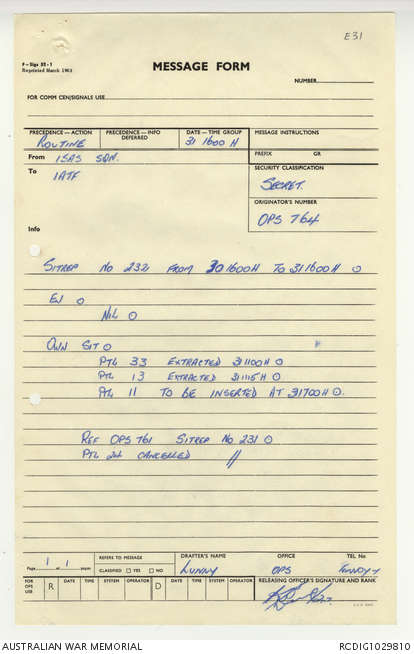 E31
F-Sigs 52-1
Reprinted March 1963
MESSAGE FORM
NUMBER
FOR COMM CEN/SIGNALS USE
PRECEDENCE—ACTION
ROUTINE
PRECEDENCE—INFO
DEFERRED
DATE—TIME GROUP
31 1600 H
MESSAGE INSTRUCTIONS
PREFIX GR
From 1SAS SQN.
To 1ATF
SECURITY CLASSIFICATION
SECRET.
ORIGINATOR'S NUMBER
OPS 764
Info
SITREP No 232 FROM 301600H TO 311600H O
EN O
NIL O
OWN SIT O
PTL 33 EXTRACTED 311100H O
PTL 13 EXTRACTED 311115H O
PTL 11 TO BE INSERTED AT 311700H O.
REF OPS 761 SITREP No 231 O
PTL 24 CANCELLED //
Page 1 of 1 pages
REFERS TO MESSAGE
CLASSIFIED YES NO
DRAFTER'S NAME
LUNNY
OFFICE
OPS
TEL No
FOR OPS USE
R DATE TIME SYSTEM OPERATOR
D DATE TIME SYSTEM OPERATOR
RELEASING OFFICER'S SIGNATURE AND RANK
AUSTRALIAN WAR MEMORIAL
RCDIG1029810